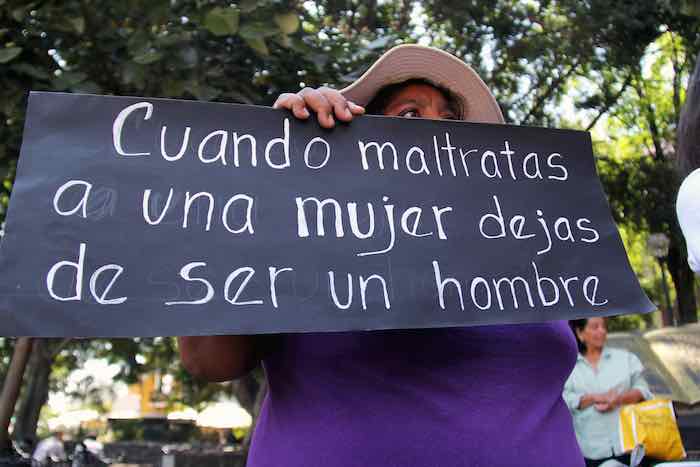 Cuando maltratas
a una mujer dejas
de ser un hombre